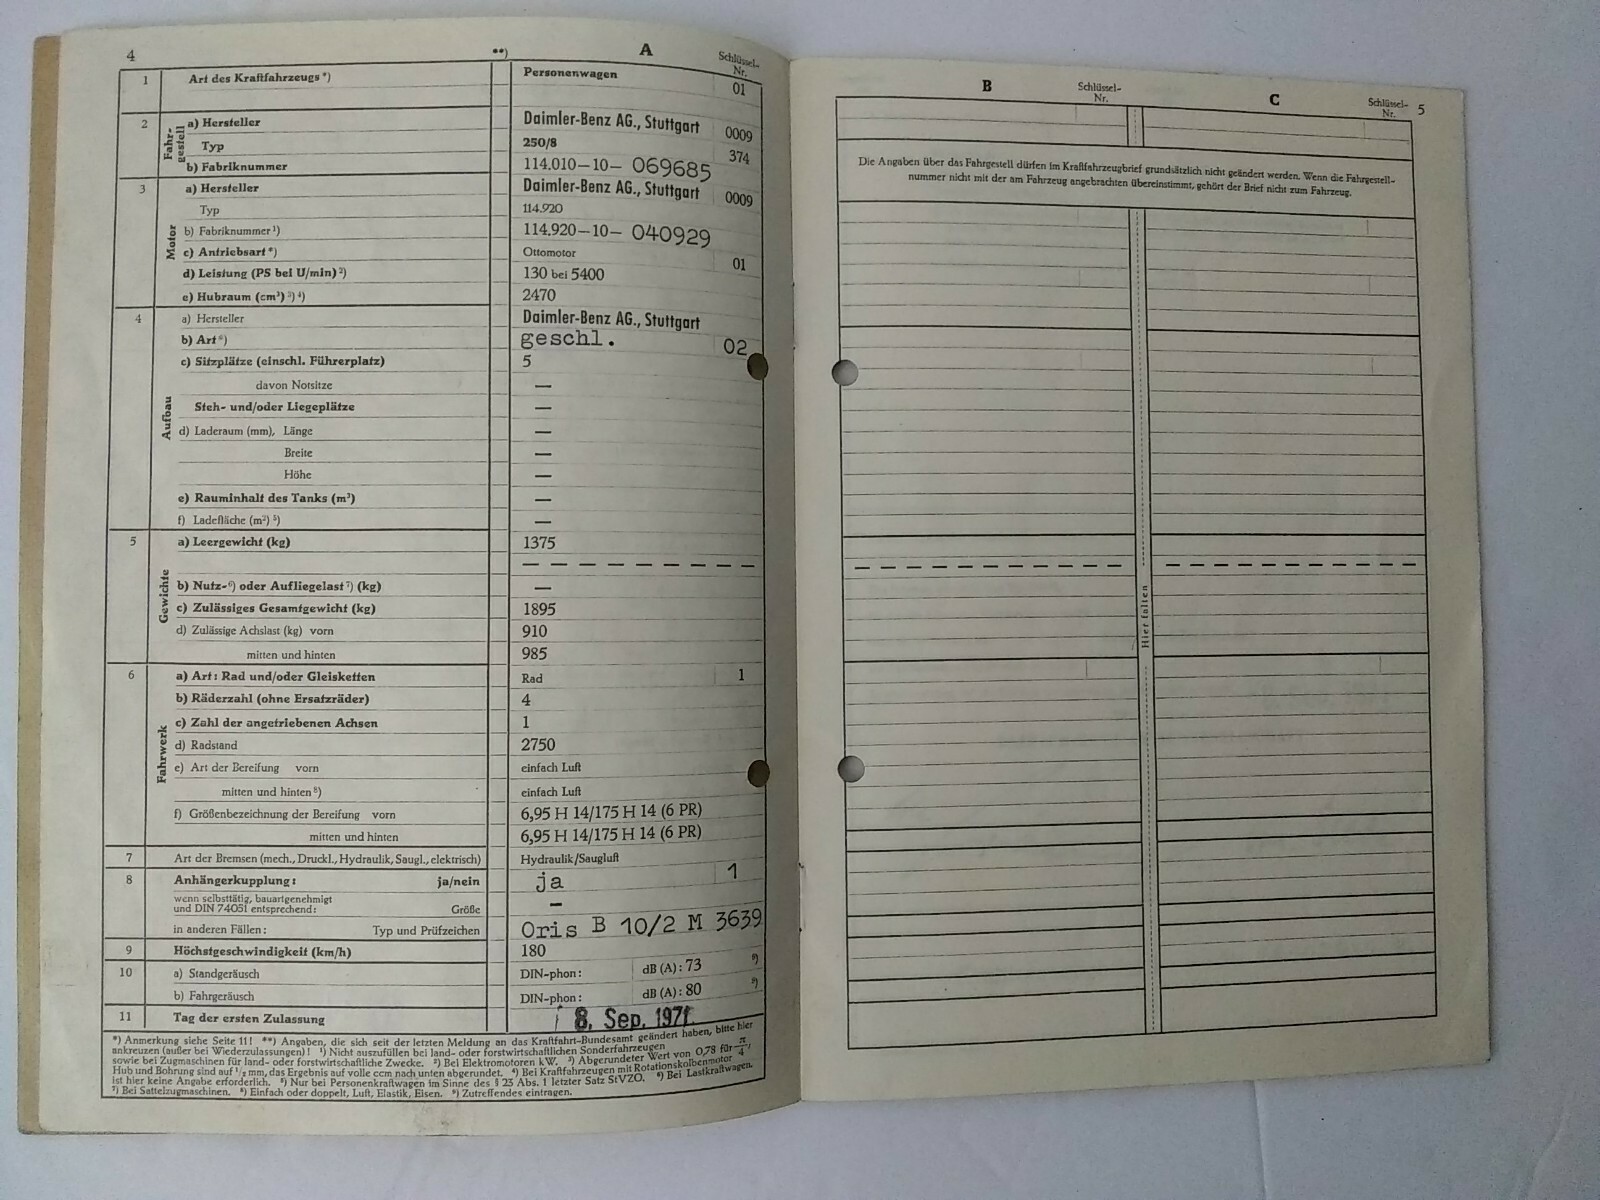 4 **) A Schlüssel-Nr.
1 Art des Kraftfahrzeugs *) Personenwagen 01
2 Fahrgestell a) Hersteller Daimler-Benz AG., Stuttgart 0009
Typ 250/8 374
b) Fabriknummer 114.010-10- 069685
3 Motor a) Hersteller Daimler-Benz AG., Stuttgart 0009
Typ 114.920
b) Fabriknummer ¹) 114.920-10- 040929
c) Antriebsart *) Ottomotor 01
d) Leistung (PS bei U/min) ²) 130 bei 5400
e) Hubraum (cm³) ³) ⁴) 2470
4 Aufbau a) Hersteller Daimler-Benz AG., Stuttgart
b) Art *) geschl. 02
c) Sitzplätze (einschl. Führerplatz) 5
davon Notsitze —
Steh- und/oder Liegeplätze —
d) Laderaum (mm), Länge —
Breite —
Höhe —
e) Rauminhalt des Tanks (m³) —
f) Ladefläche (m²) ⁵) —
5 Gewichte a) Leergewicht (kg) 1375
b) Nutz- ⁶) oder Aufliegelast ⁷) (kg) —
c) Zulässiges Gesamtgewicht (kg) 1895
d) Zulässige Achslast (kg) vorn 910
mitten und hinten 985
6 Fahrwerk a) Art: Rad und/oder Gleisketten Rad 1
b) Räderzahl (ohne Ersatzräder) 4
c) Zahl der angetriebenen Achsen 1
d) Radstand 2750
e) Art der Bereifung vorn einfach Luft
mitten und hinten ⁸) einfach Luft
f) Größenbezeichnung der Bereifung vorn 6,95 H 14/175 H 14 (6 PR)
mitten und hinten 6,95 H 14/175 H 14 (6 PR)
7 Art der Bremsen (mech., Druckl., Hydraulik, Saugl., elektrisch) Hydraulik/Saugluft
8 Anhängerkupplung: ja/nein ja 1
wenn selbsttätig, bauartgenehmigt
und DIN 74051 entsprechend: Größe –
in anderen Fällen: Typ und Prüfzeichen Oris B 10/2 M 3639
9 Höchstgeschwindigkeit (km/h) 180
10 a) Standgeräusch DIN-phon: dB (A): 73 ⁹)
b) Fahrgeräusch DIN-phon: dB (A): 80 ⁹)
11 Tag der ersten Zulassung 8. Sep. 1971
*) Anmerkung siehe Seite 11! **) Angaben, die sich seit der letzten Meldung an das Kraftfahrt-Bundesamt geändert haben, bitte hier
ankreuzen (außer bei Wiederzulassungen)! ¹) Nicht auszufüllen bei land- oder forstwirtschaftlichen Sonderfahrzeugen
sowie bei Zugmaschinen für land- oder forstwirtschaftliche Zwecke. ²) Bei Elektromotoren kW. ³) Abgerundeter Wert von 0,78 für π/4,
Hub und Bohrung sind auf ¹/₂ mm, das Ergebnis auf volle ccm nach unten abgerundet. ⁴) Bei Kraftfahrzeugen mit Rotationskolbenmotor
ist hier keine Angabe erforderlich. ⁵) Nur bei Personenkraftwagen im Sinne des § 23 Abs. 1 letzter Satz StVZO. ⁶) Bei Lastkraftwagen.
⁷) Bei Sattelzugmaschinen. ⁸) Einfach oder doppelt, Luft, Elastik, Eisen. ⁹) Zutreffendes eintragen.
B Schlüssel-Nr. C Schlüssel-Nr. 5
Die Angaben über das Fahrgestell dürfen im Kraftfahrzeugbrief grundsätzlich nicht geändert werden. Wenn die Fahrgestell-
nummer nicht mit der am Fahrzeug angebrachten übereinstimmt, gehört der Brief nicht zum Fahrzeug.
Hier falten